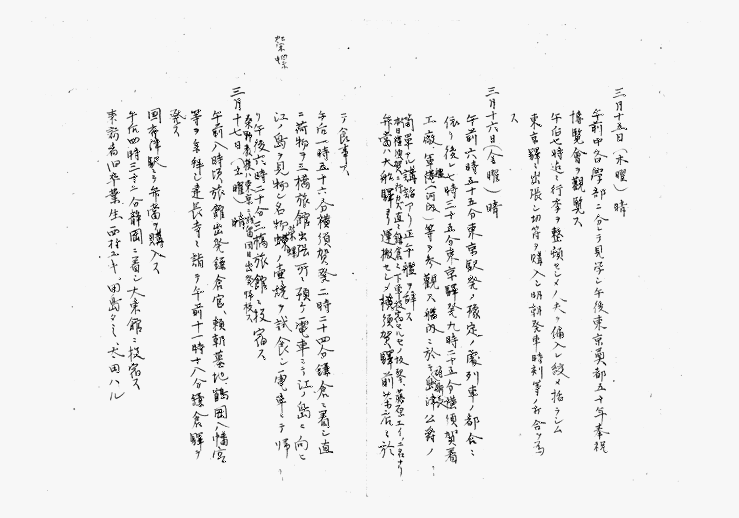 三月十五日（木曜）晴
午前中各学部ニ分レテ見学シ午後東京奠都五十年奉祝
博覧会ヲ観覧ス
午后七時迄ニ行李ヲ整頓セシメ
東京驛ニ出張シ切符ヲ購入シ明朝発車時刻等ノ打合ヲ為
ス
三月十六日（金曜）晴
午前六時五十五分東京駅発ノ豫定ノ處列車ノ都合ニ
依リ後レ七時三十五分東京驛発九時二十五分横須賀着
工廠軍港（河内）等ヲ参観ス艦内ニ於テ島津公爵ノ
簡単ナル講話アリ正午艦ヲ辞ス
弁当ハ大船驛ヨリ運搬セシメ横須賀驛前茶店ニ於
テ食事ス
午后一時五十六分横須賀発二時二十四分鎌倉ニ着シ直
ニ荷物ヲ三橋旅館出張所ニ預ケ電車ニテ江ノ島ニ向ヒ
江ノ島ヲ見物シ名物蠑螺ノ壷焼ヲ試食シ電車ニテ帰
リ午後六時二十分三橋旅館ニ投宿ス
栄螺
三月十七日（土曜）晴
午前八時頃旅館出発鎌倉宮、頼朝墓地、鶴岡八幡宮
等ヲ参拝シ建長寺ニ詣リ午前十一時十八分鎌倉驛ヲ
発ス
国府津駅ニテ弁当ヲ購入ス
午后四時三十二分静岡ニ着シ大東館ニ投宿ス
来訪者旧卒業生 西村ユキ、田島